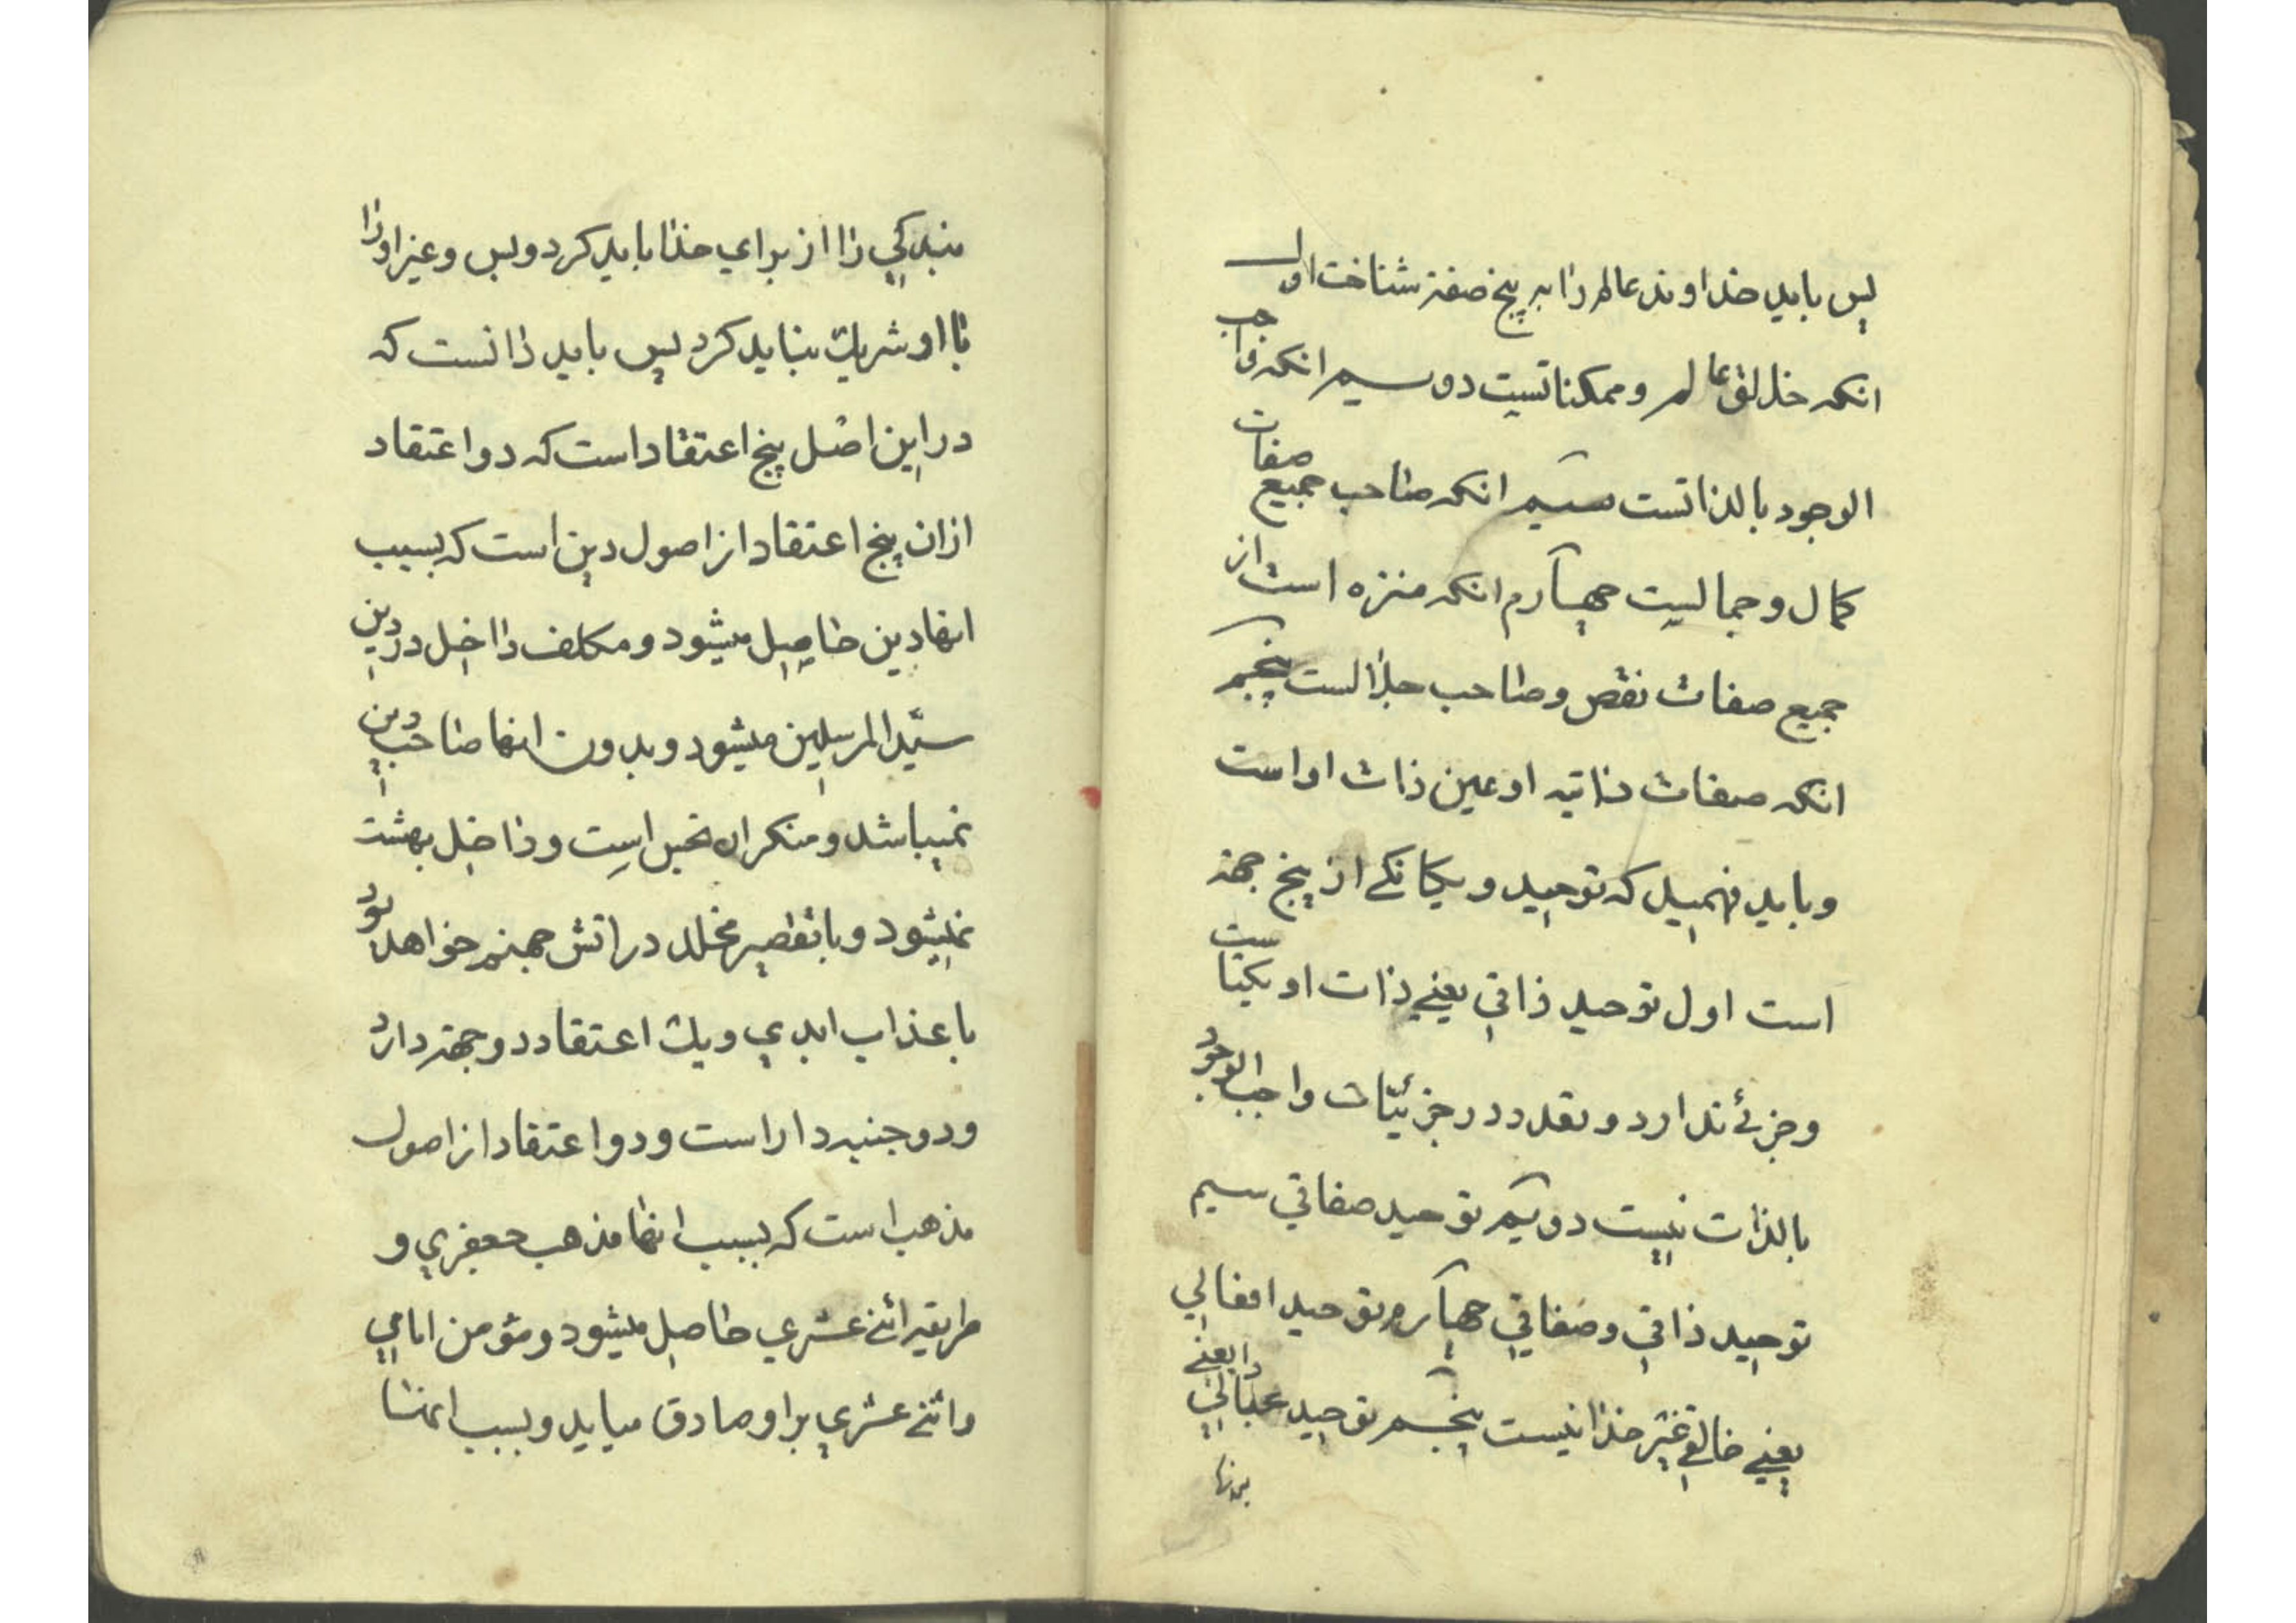 پس باید خداوند عالم را به پنج صفة شناخت اول
انکه خالق عالم و ممکناتست دوسیم انکه واجب
الوجود بالذاتست سیم انکه صاحب جمیع صفات
کمال و جمالیت چهارم انکه منزه است از
جمیع صفات نقص و صاحب جلالست پنجم
انکه صفات ذاتیه او عین ذات او است
و باید فهمید که توحید و یکانکے از پنج جهة
است اول توحید ذاتي یعنے ذات او یکتاست
و جزئے ندارد و تعدد در جزئیّات واجب الوجود
بالذات نیست دویم توحید صفاتي سیم
توحید ذاتي و صفاتي چهارم توحید افعالي
یعنے خالقے غیر خدا نیست پنجم توحید عبادتي یعنے
بندکي را از براي خدا باید کرد و بس و غیر او را
با او شریك نباید کرد پس باید دانست که
در این اصل پنج اعتقاد است که دو اعتقاد
ازان پنج اعتقاد از اصول دین است که بسبب
انها دین حاصل میشود و مکلف داخل در دین
سیّد المرسلین میشود و بدون انها صاحب دین
نمیباشد و منکر ان نجس است و داخل بهشت
نمیشود و با تقصیر مخلد در اتش جهنم خواهد بود
با عذاب ابدي و یك اعتقاد دو جهة دارد
و دو جنبه دار است و دو اعتقاد از اصول
مذهب است که بسبب انها مذهب جعفري و
طریقه اثنے عشري حاصل میشود و مؤمن امامي
و اثنے عشري بر او صادق میاید و بسبب انها